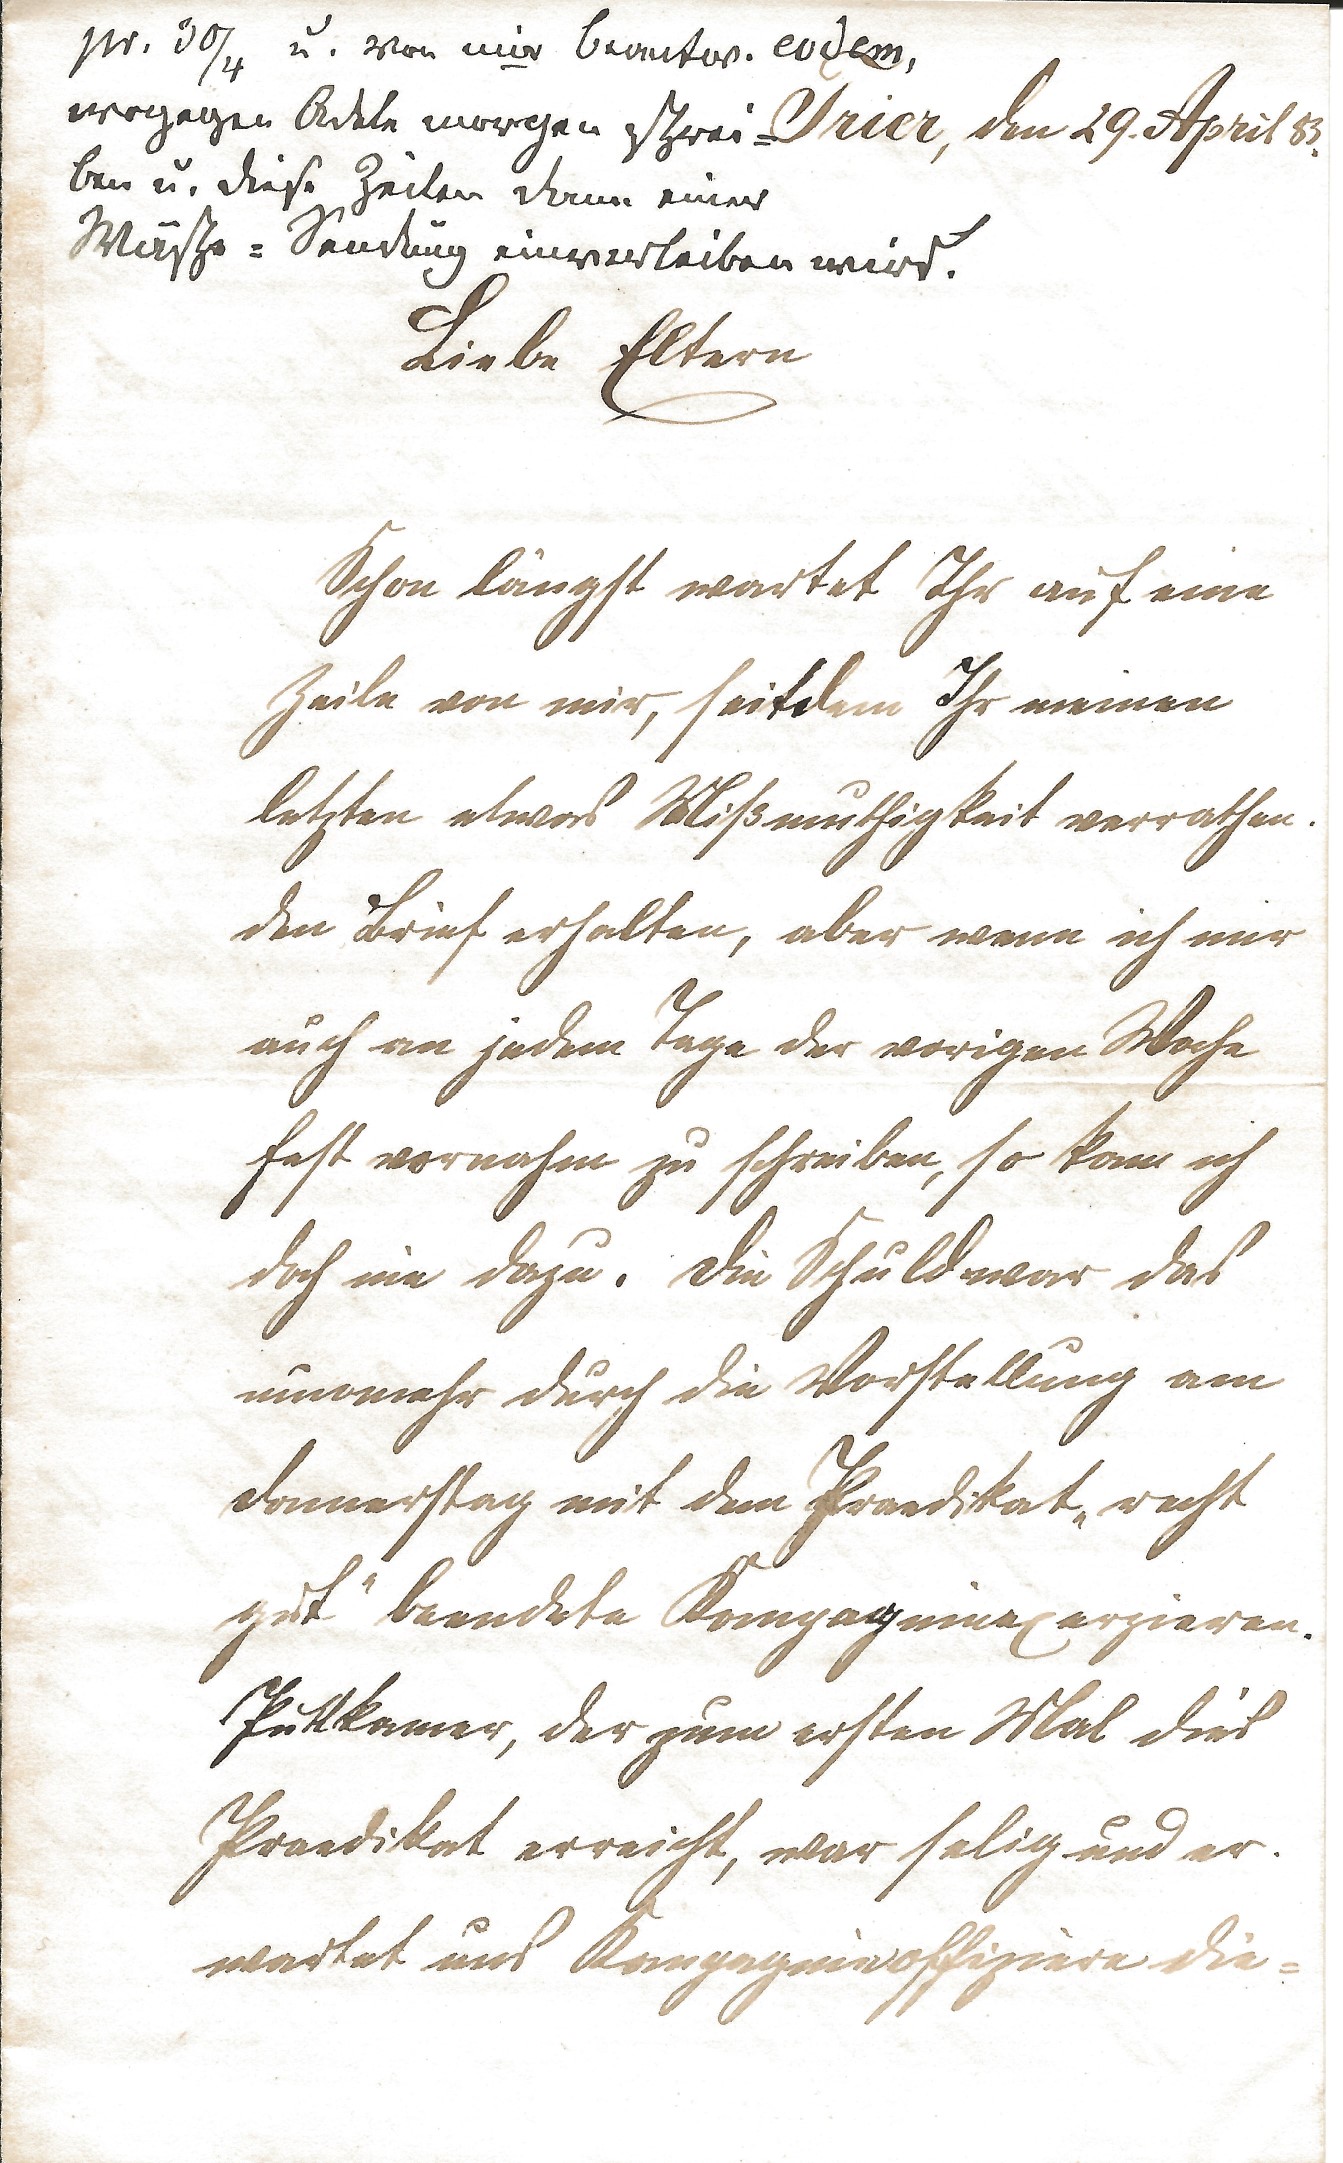 pr. 30/4 u. von mir beantw. eodem,
wogegen Adele morgen schrei-
ben u. diese Zeilen dann einer
Wäsche-Sendung einverleiben wird.
Trier, den 29. April 83.
Liebe Eltern
Schon längst wartet Ihr auf eine
Zeile von mir, seitdem Ihr meinen
letzten etwas Mißmuthigkeit verrathen-
den Brief erhalten, aber wenn ich mir
auch an jedem Tage der vorigen Woche
fest vornahm zu schreiben, so kam ich
doch nie dazu. Die Schuld war das
nunmehr durch die Vorstellung am
Donnerstag mit dem Praedikat „recht
gut" beendete Kompagnieexerzieren.
Puttkamer, der zum ersten Mal dies
Praedikat erreicht, war selig und er-
wartet uns Kompagnieoffiziere die=